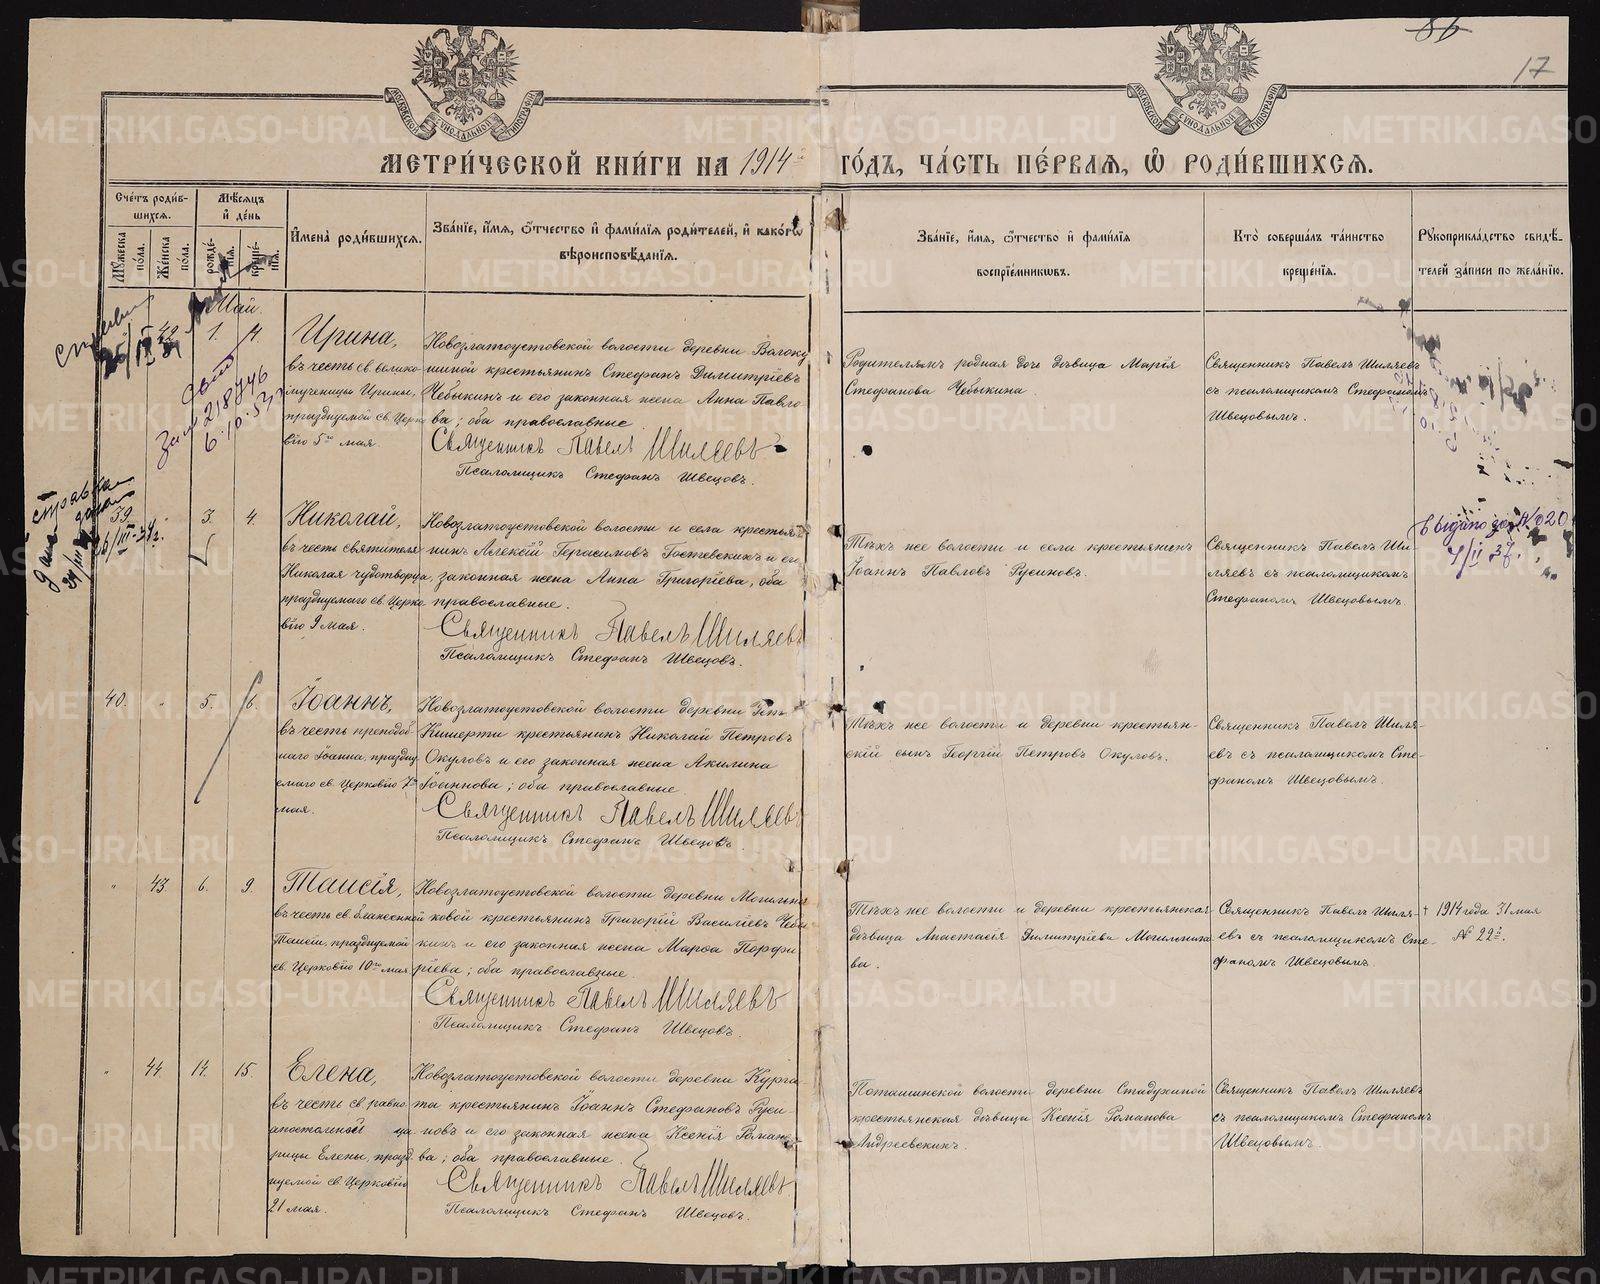 86
17
МОСКОВСКОЙ СѴНОДАЛЬНОЙ ТИПОГРАФІИ
МОСКОВСКОЙ СѴНОДАЛЬНОЙ ТИПОГРАФІИ
МЕТРИ́ЧЕСКОЙ КНИ́ГИ НА 1914й ГО́ДЪ, ЧА́СТЬ ПЕ́РВАЯ, Ѡ РОДИ́ВШИХСЯ.
Сче́тъ роди́в-
шихся.
Мѣ́сяцъ
и҆ де́нь
Мꙋ́жеска по́ла.
Же́нска по́ла.
рожде́-
нїя.
креще́-
нїя.
И҆мена̀ роди́вшихся.
Зва́нїе, и҆́мя, ѻ҆́тчество и҆ фами́лїя роди́телей, и҆ како́гѡ
вѣроисповѣ́данїя.
Зва́нїе, и҆́мя, ѻ҆́тчество и҆ фами́лїя
воспрїе́мникѡвъ.
Кто̀ соверша́лъ та́инство
креще́нїя.
Рꙋкоприкла́дство свидѣ́-
телей за́писи по жела́нїю.
Май.
42
1.
4.
Ирина,
въ честь св. велико
мученицы Ирины,
празднуемой св. Церко
вію 5го мая.
Новозлатоустовской волости деревни Волоку
шиной крестьянинъ Стефанъ Димитріевъ
Чебыкинъ и его законная жена Анна Павло
ва; оба православные
Священникъ Павелъ Шиляевъ
Псаломщикъ Стефанъ Швецовъ.
Родителямъ родная дочь дѣвица Марія
Стефанова Чебыкина.
Священникъ Павелъ Шиляевъ
съ псаломщикомъ Стефаномъ
Швецовымъ.
218446
6.10.53
справка
дана
39
26/III-37г.
3.
4.
Николай,
въ честь святителя
Николая чудотворца,
празднуемаго св. Церко
вію 9 мая.
Новозлатоустовской волости и села крестья
нинъ Алексій Герасимовъ Гостевскихъ и его
законная жена Анна Григоріева, оба
православные.
Священникъ Павелъ Шиляевъ
Псаломщикъ Стефанъ Швецовъ.
Тѣхъ же волости и села крестьянинъ
Іоаннъ Павловъ Русиновъ.
Священникъ Павелъ Ши-
ляевъ съ псаломщикомъ
Стефаномъ Швецовымъ.
Выдано за №020
4/II 37.
40.
5.
6.
Іоаннъ,
въ честь преподоб
наго Іоанна, праздну
емаго св. Церковію 7го
мая.
Новозлатоустовской волости деревни Усть
Кишерти крестьянинъ Николай Петровъ
Окуловъ и его законная жена Акилина
Іоаннова; оба православные
Священникъ Павелъ Шиляевъ
Псаломщикъ Стефанъ Швецовъ.
Тѣхъ же волости и деревни крестьян-
скій сынъ Георгій Петровъ Окуловъ.
Священникъ Павелъ Шиля-
евъ съ псаломщикомъ Сте-
фаномъ Швецовымъ.
"
43
6.
9.
Таисія,
въ честь св. блаженной
Таисіи, празднуемой
св. Церковію 10го мая
Новозлатоустовской волости деревни Могильни
ковой крестьянинъ Григорій Василіевъ Чебы
кинъ и его законная жена Марѳа Порфи
ріева; оба православные
Священникъ Павелъ Шиляевъ
Псаломщикъ Стефанъ Швецовъ.
Тѣхъ же волости и деревни крестьянская
дѣвица Анастасія Димитріева Могильнико
ва.
Священникъ Павелъ Шиля-
евъ съ псаломщикомъ Сте-
фаномъ Швецовымъ.
† 1914 года 31 мая
№ 22й.
"
44.
14.
15.
Елена,
въ честь св. равно
апостольной ца-
рицы Елены, празд-
нуемой св. Церковію
21 мая.
Новозлатоустовской волости деревни Курга
та крестьянинъ Іоаннъ Стефановъ Руси-
новъ и его законная жена Ксенія Романо
ва; оба православные.
Священникъ Павелъ Шиляевъ
Псаломщикъ Стефанъ Швецовъ.
Поташинской волости деревни Стадухиной
крестьянская дѣвица Ксенія Романова
Андреевскихъ.
Священникъ Павелъ Шиляевъ
съ псаломщикомъ Стефаномъ
Швецовымъ.
METRIKI.GASO-URAL.RU